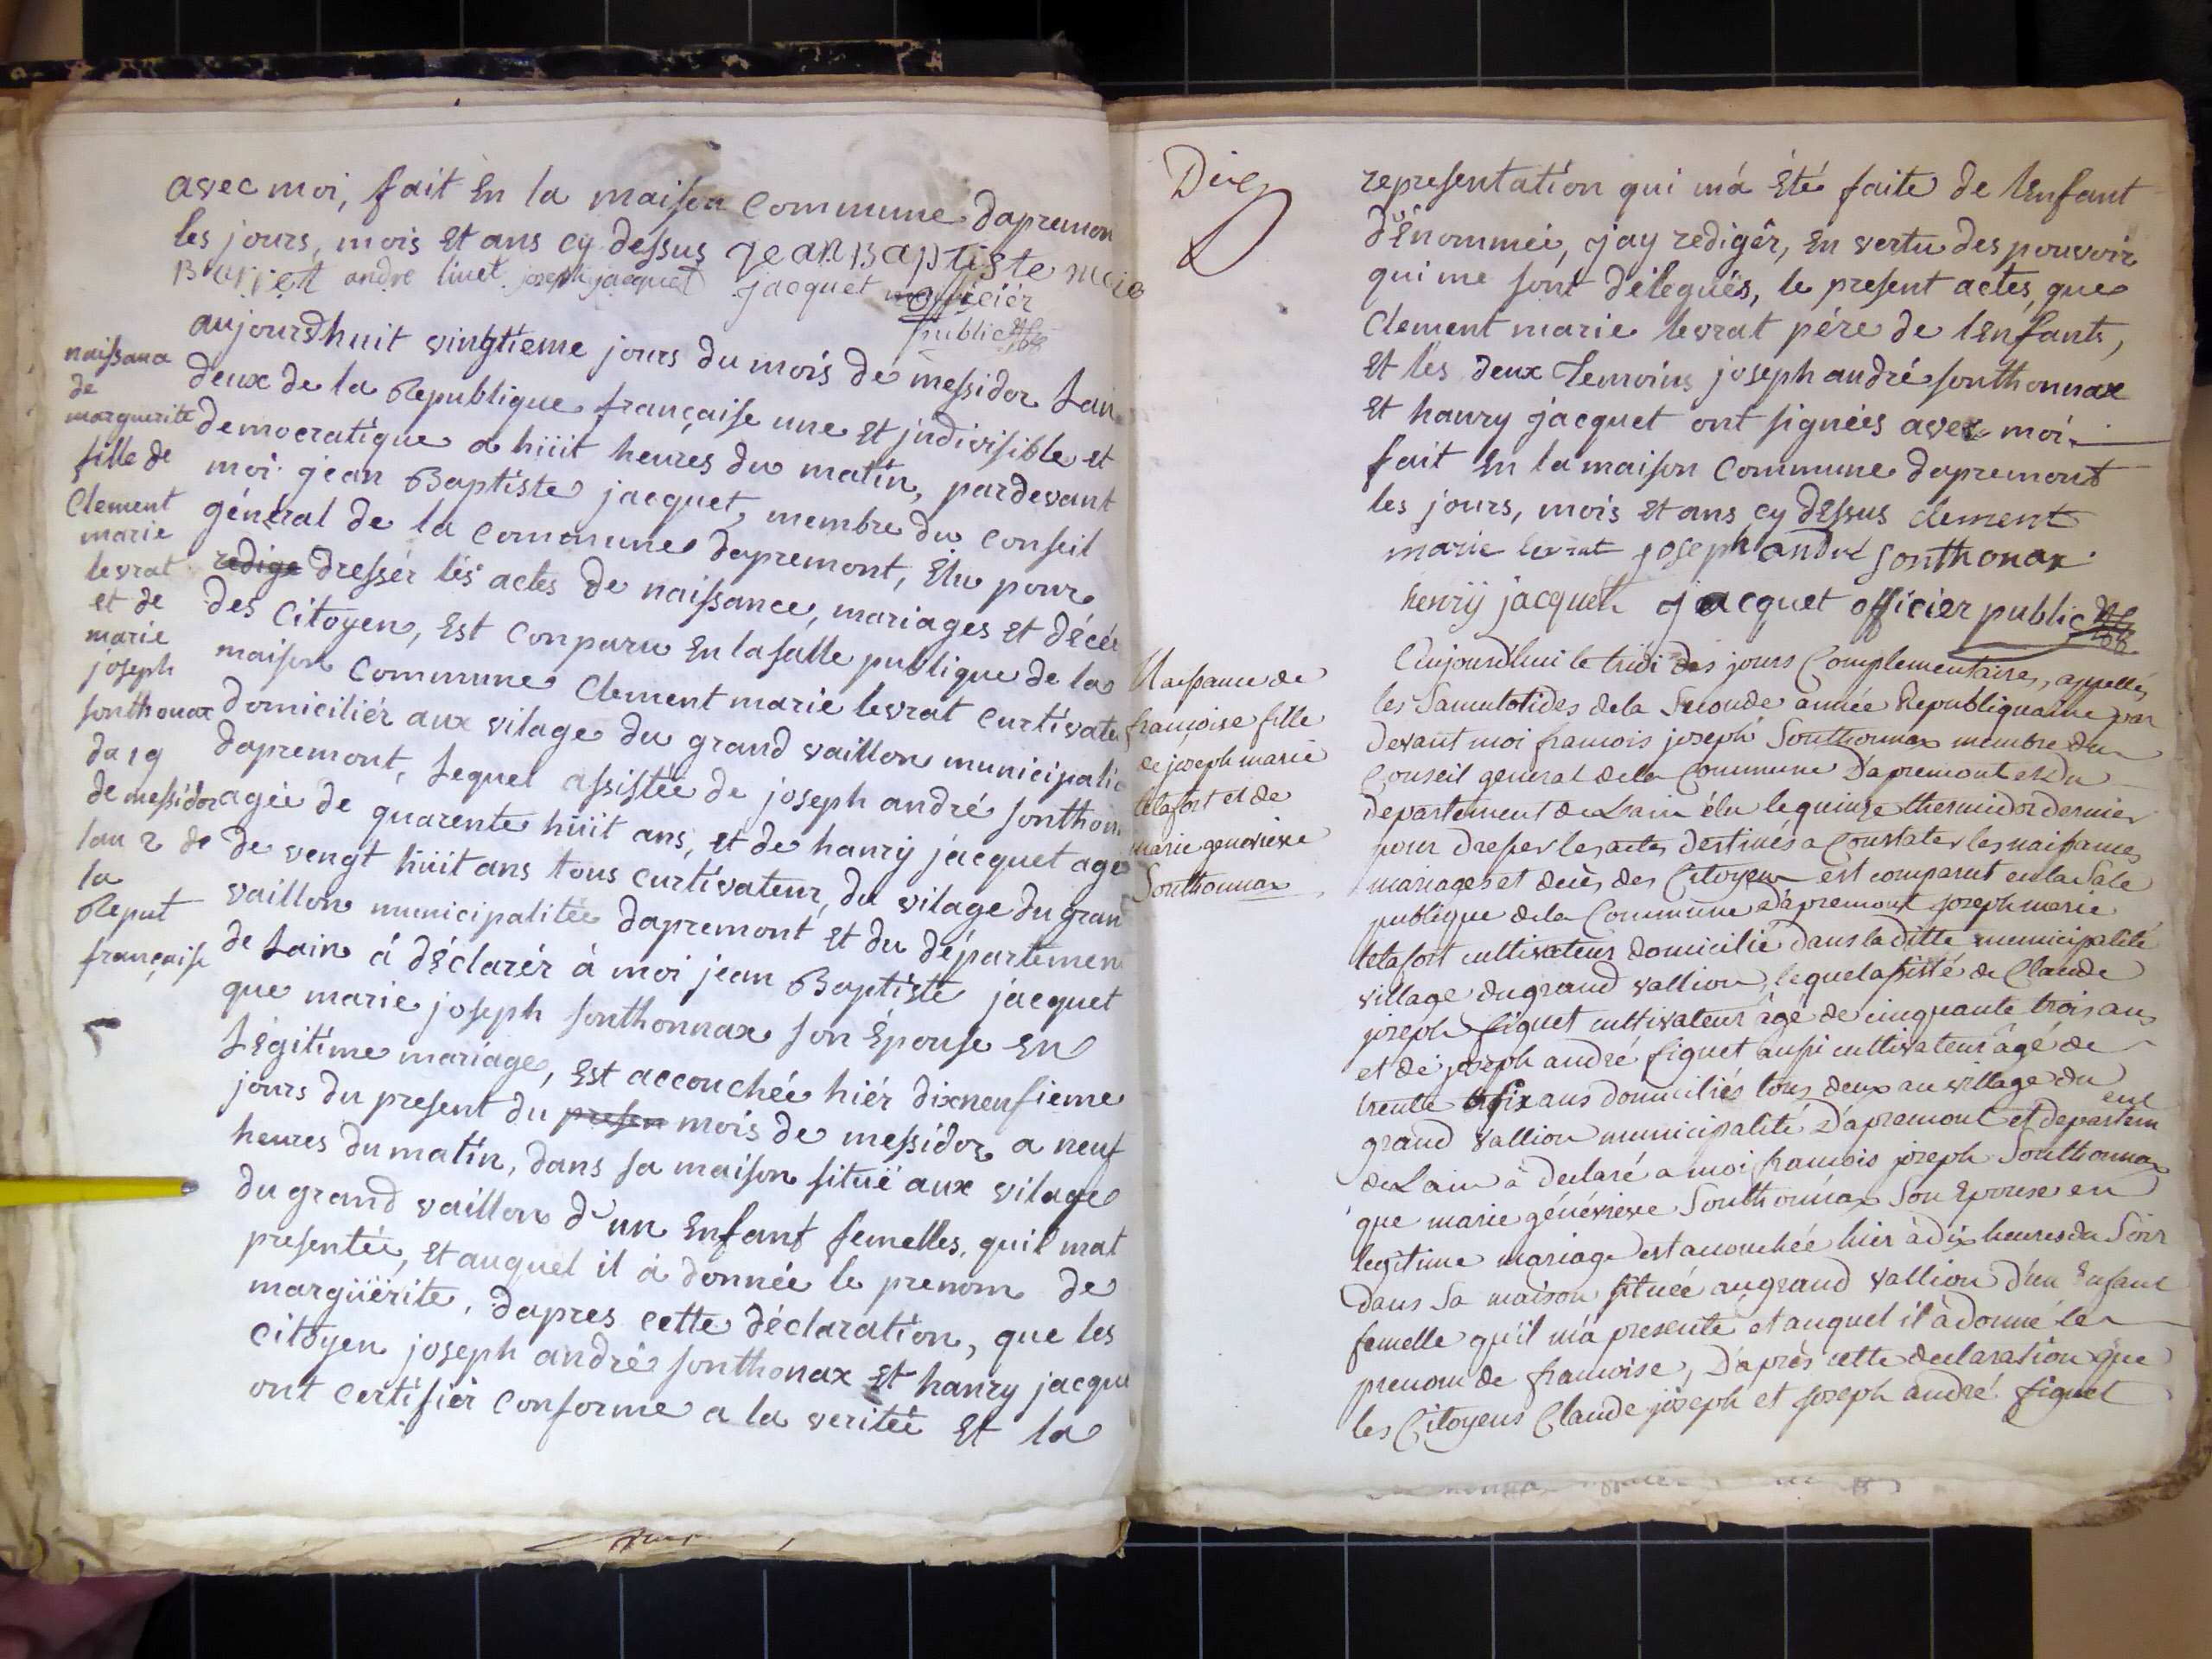 avec moi, fait En la maison Commune dapremon
les jours, mois Et ans cy dessus jean Baptiste marie
Burjet andre linet joseph jacquet jacquet officiér
public
naissance
de
marguerite
fille de
Clement
marie
levrat
et de
marie
joseph
sonthonax
da 19
de messidor
lan 2 de
la
Reput
française
aujourdhuit vingtieme jours du mois de messidor Lan
deux de la Republique française une Et jndivisible et
democratique a hüit heures du matin, pardevant
moi jean Baptiste jacquet, membre du Conseil
général de la Commune dapremont, Elu pour
redige dressér lés actes de naissance, mariages Et décéz
des Citoyen, Est Conparu En la salle publique de la
maison Commune Clement marie levrat Curtivateu
domiciliér aux vilage du grand vaillon municipalit
dapremont, Lequel assistée de joseph andré sonthon
agée de quarente hüit ans, et de hanry jácquet age
de vengt hüit ans tous Curtivateur, du vilage du gran
vaillon municipalitée dapremont Et du départemen
de Lain á déclarér á moi jean Baptiste jacquet
que marie joseph sonthonnax son Epouse En
Légitime mariage, Est accouchée hiér dixneufieme
jours du present du presen mois de messidor a neuf
heures du matin, dans sa maison sitüé aux vilage
du grand vaillon d'un Enfant femelles, quil mat
presentée, Et auquel il á donnée le prenom de
margüérite, dapres cette déclaration, que les
Citoyen joseph andré sonthonax Et hanry jacque
ont Certifiér Conforme a la veritée Et la
Dix
representation qui má Eté faite de lEnfant
dénommée, jay redigér, En vertu des pouvoir
qui me sont délegués, le present actes, que
Clement marie levrat pére de lEnfants,
Et les deux Temoins joseph andré sonthonnax
Et hanry jacquet ont signées avec moi
fait En la maison Commune dapremont
les jours, mois Et ans cy dessus clement
marie levrat joseph andre sonthonax
henrÿ jacquet jacquet officier public
Naissance de
francoise fille
de joseph marie
letafort et de
marie genevieve
Sonthonnax
Aujourdhui le tridi des jours Complementaires, appellés
les Sanculotides de la Seconde année Republiquaine par
devant moi francois joseph Sonthonnax membre du
Conseil general de la Commune Dapremont et du
departement de Lain élu le quinze thermidor dernier
pour dresser les actes destinés a Constater les naissances
mariages et decès des Citoyens est comparut en la Sale
publique de la Commune Dapremont joseph marie
letafort cultivateur domicilié dans la ditte municipalité
village du grand vallion, lequel assisté de Claude
joseph figuet cultivateur agé de cinquante trois ans
et de joseph andré figuet aussi cultivateur âgé de
trente six ans domiciliés tous deux au village du
grand vallion municipalité Dapremont et departem ent
de Lain à declaré a moi francois joseph Sonthonnax
que marie génévieve Sonthonnax Son Epouse en
legitime mariage est acouchée hier à dix heures du Soir
dans Sa maison située au grand vallion d'un Enfant
femelle qu'il m'a presenté et auquel il à donné le
prenom de francoise, D'après cette declaration que
les Citoyens Claude joseph et joseph andré figuet